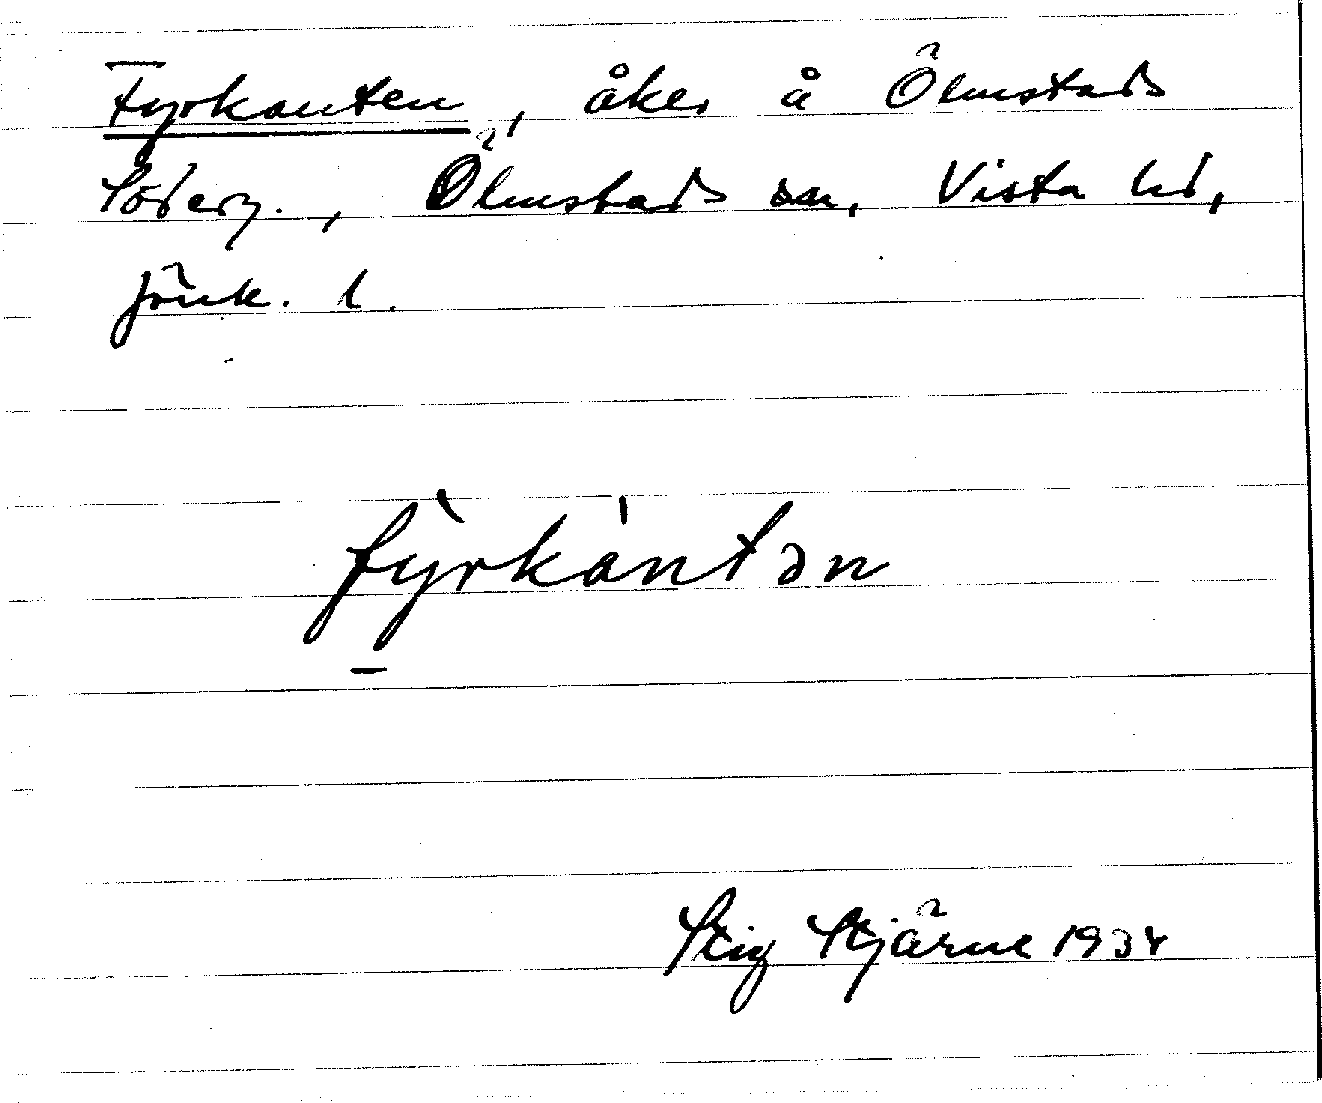 Fyrkanten, åker å Ölmstads
Söderg., Ölmstads sn, Vista hd,
Jönk. l.
fỳ̠rkàntən
Stig Stjärne 1934